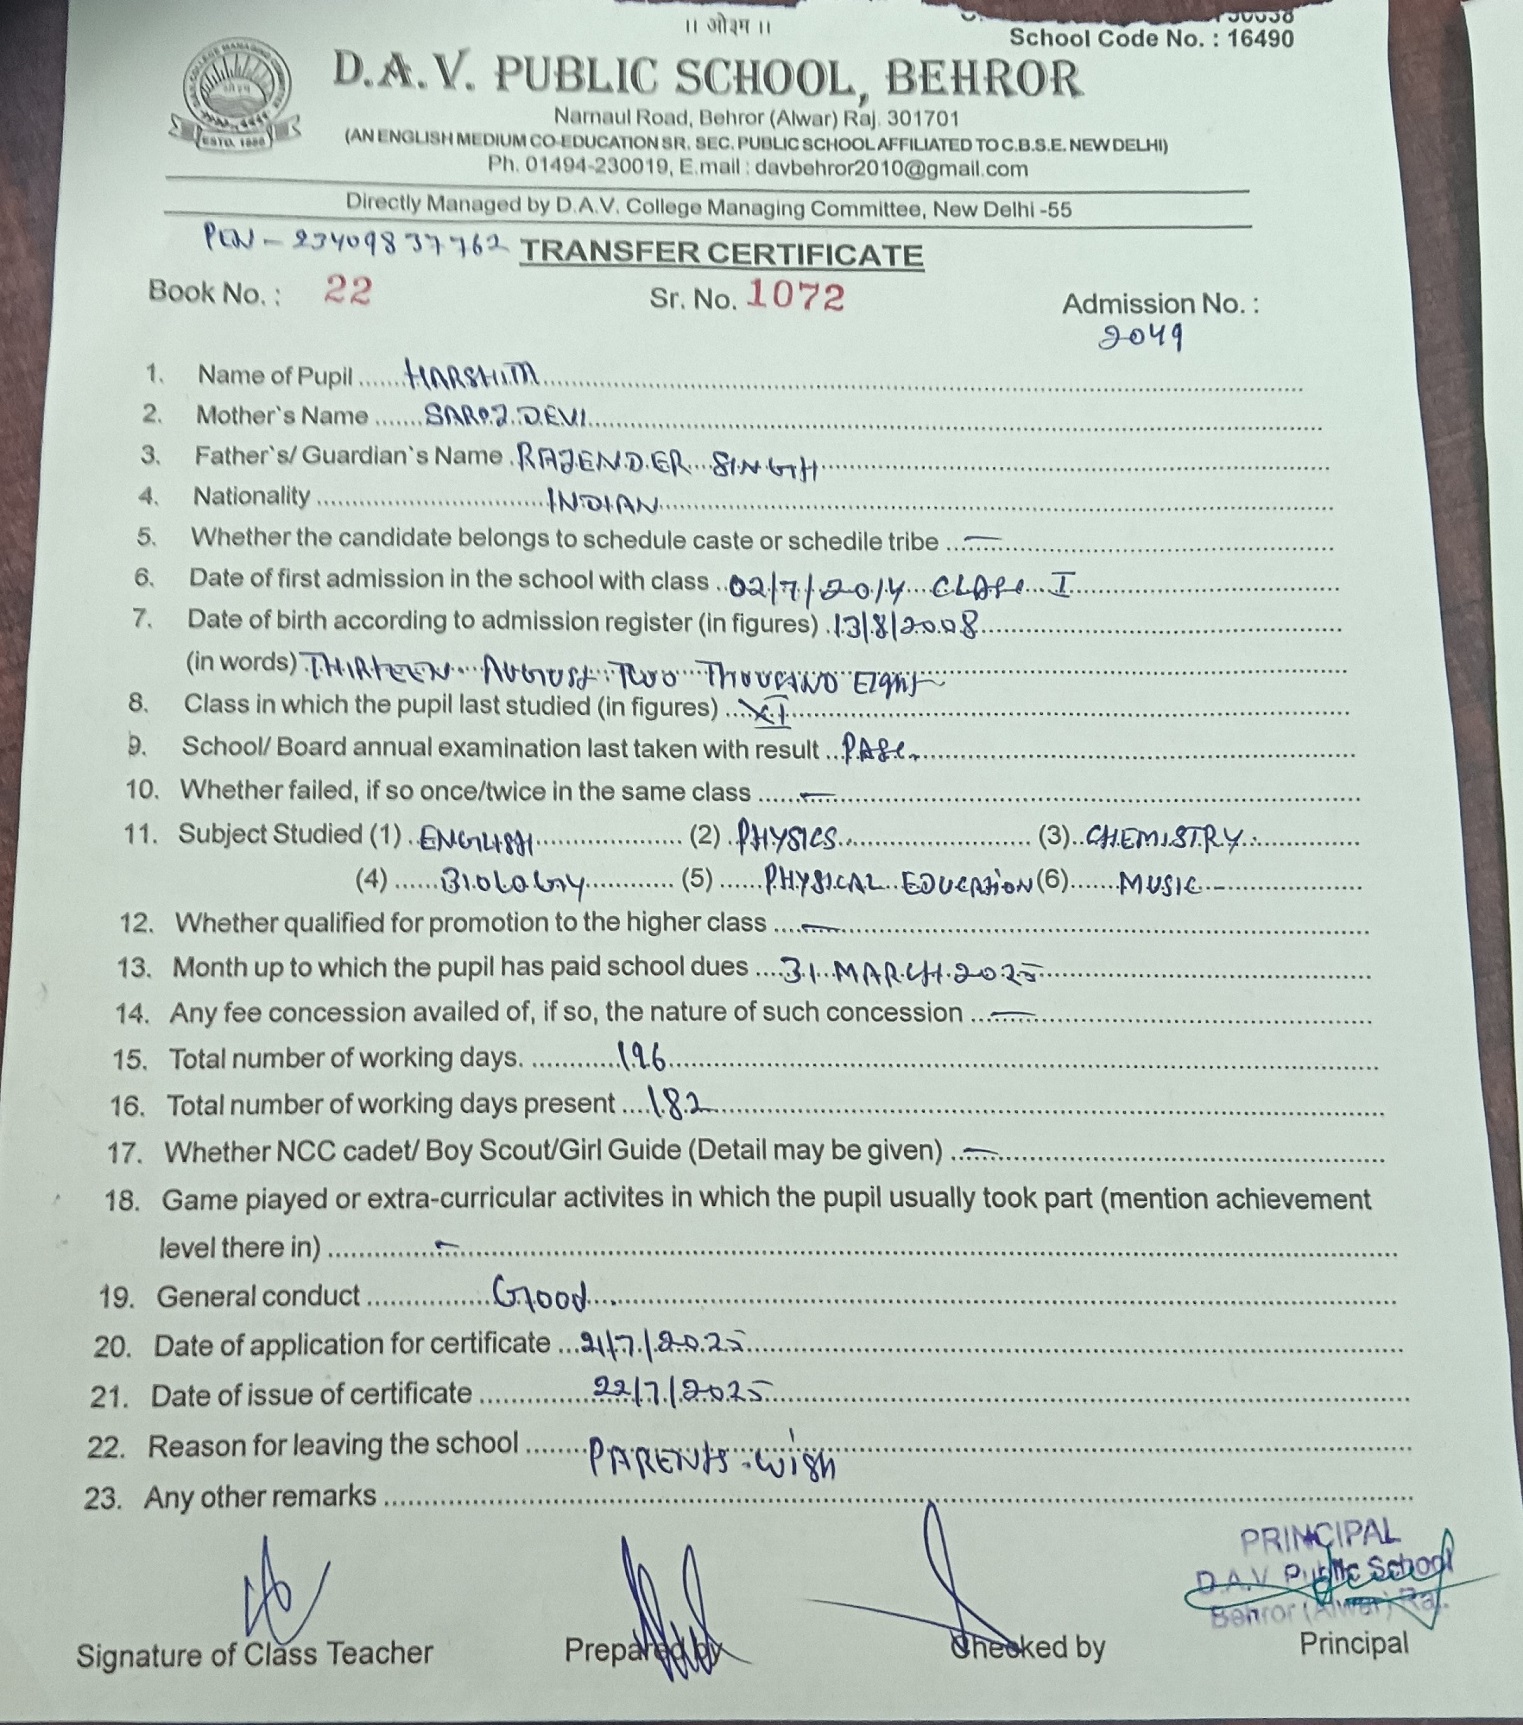 ।। ओ३म ।।
School Code No. : 16490
ESTD. 1886
D.A.V. PUBLIC SCHOOL, BEHROR
Narnaul Road, Behror (Alwar) Raj. 301701
(AN ENGLISH MEDIUM CO-EDUCATION SR. SEC. PUBLIC SCHOOL AFFILIATED TO C.B.S.E. NEW DELHI)
Ph. 01494-230019, E.mail : davbehror2010@gmail.com
Directly Managed by D.A.V. College Managing Committee, New Delhi -55
PEN - 23409837762 TRANSFER CERTIFICATE
Book No. : 22 Sr. No. 1072 Admission No. :
2049
1. Name of Pupil ...... HARSHIM
2. Mother`s Name ...... SAROJ DEVI
3. Father`s/ Guardian`s Name . RAJENDER SINGH
4. Nationality ...... INDIAN
5. Whether the candidate belongs to schedule caste or schedile tribe ... —
6. Date of first admission in the school with class .. 02/7/2014 CLASS I
7. Date of birth according to admission register (in figures) . 13/8/2008
(in words) THIRTEEN AUGUST TWO THOUSAND EIGHT
8. Class in which the pupil last studied (in figures) .... XI
9. School/ Board annual examination last taken with result .. PASS
10. Whether failed, if so once/twice in the same class ..... —
11. Subject Studied (1) . ENGLISH ...... (2) . PHYSICS ...... (3) .. CHEMISTRY
(4) ...... BIOLOGY ...... (5) ...... PHYSICAL EDUCATION (6) ...... MUSIC -
12. Whether qualified for promotion to the higher class .... —
13. Month up to which the pupil has paid school dues .... 31 MARCH 2025
14. Any fee concession availed of, if so, the nature of such concession ... —
15. Total number of working days. ...... 196
16. Total number of working days present .... 182
17. Whether NCC cadet/ Boy Scout/Girl Guide (Detail may be given) ... —
18. Game piayed or extra-curricular activites in which the pupil usually took part (mention achievement
level there in) ...... —
19. General conduct ...... Good
20. Date of application for certificate ... 21/7/2025
21. Date of issue of certificate ...... 22/7/2025
22. Reason for leaving the school ...... PARENTS wish
23. Any other remarks ......
PRINCIPAL
D.A.V. Public School
Behror (Alwar) Raj.
Signature of Class Teacher Prepared by Checked by Principal